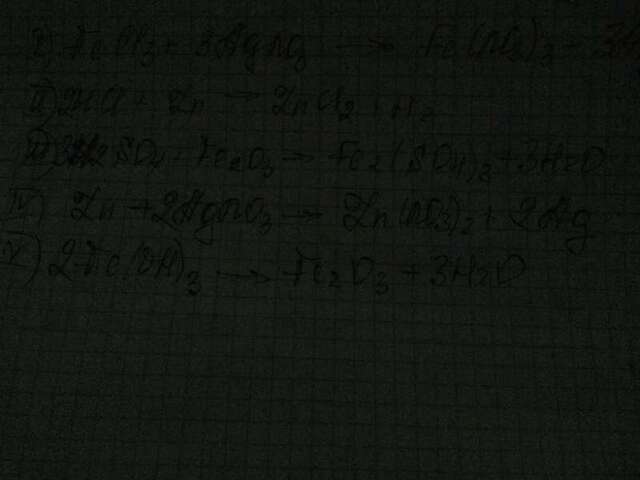 I) FeCl3 + 3AgNO3 → Fe(NO3)3 + 3
II) 2HCl + Zn → ZnCl2 + H2
III) 3H2SO4 + Fe2O3 → Fe2(SO4)3 + 3H2O
IV) Zn + 2AgNO3 → Zn(NO3)2 + 2Ag
V) 2Fe(OH)3 → Fe2O3 + 3H2O